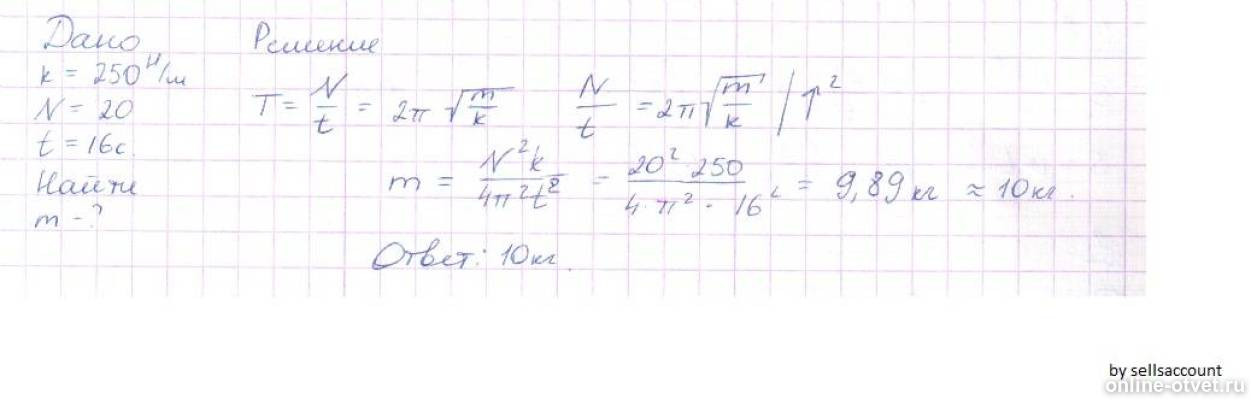 Дано
k = 250 Н/м
N = 20
t = 16с.
Найти
m - ?
Решение
T = N/t = 2π √(m/k) N/t = 2π √(m/k) | ↑²
m = N²k / 4π²t² = 20² 250 / 4·π²·16² = 9,89 кг ≈ 10 кг.
Ответ: 10 кг.
by sellsaccount
online-otvet.ru